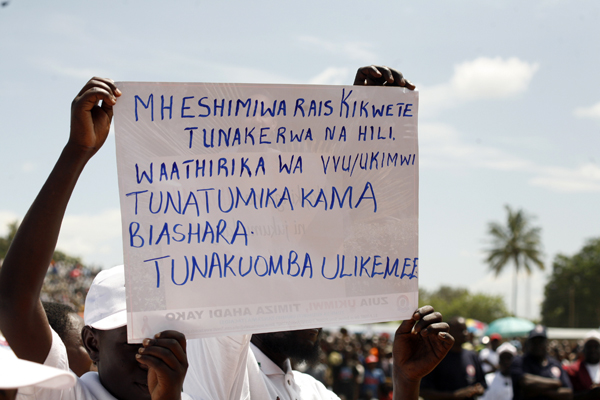 MHESHIMIWA RAIS KIKWETE
TUNAKERWA NA HILI.
WAATHIRIKA WA VVU/UKIMWI
TUNATUMIKA KAMA
BIASHARA.
TUNAKUOMBA ULIKEMEE
ZUIA UKIMWI, TIMIZA AHADI YAKO